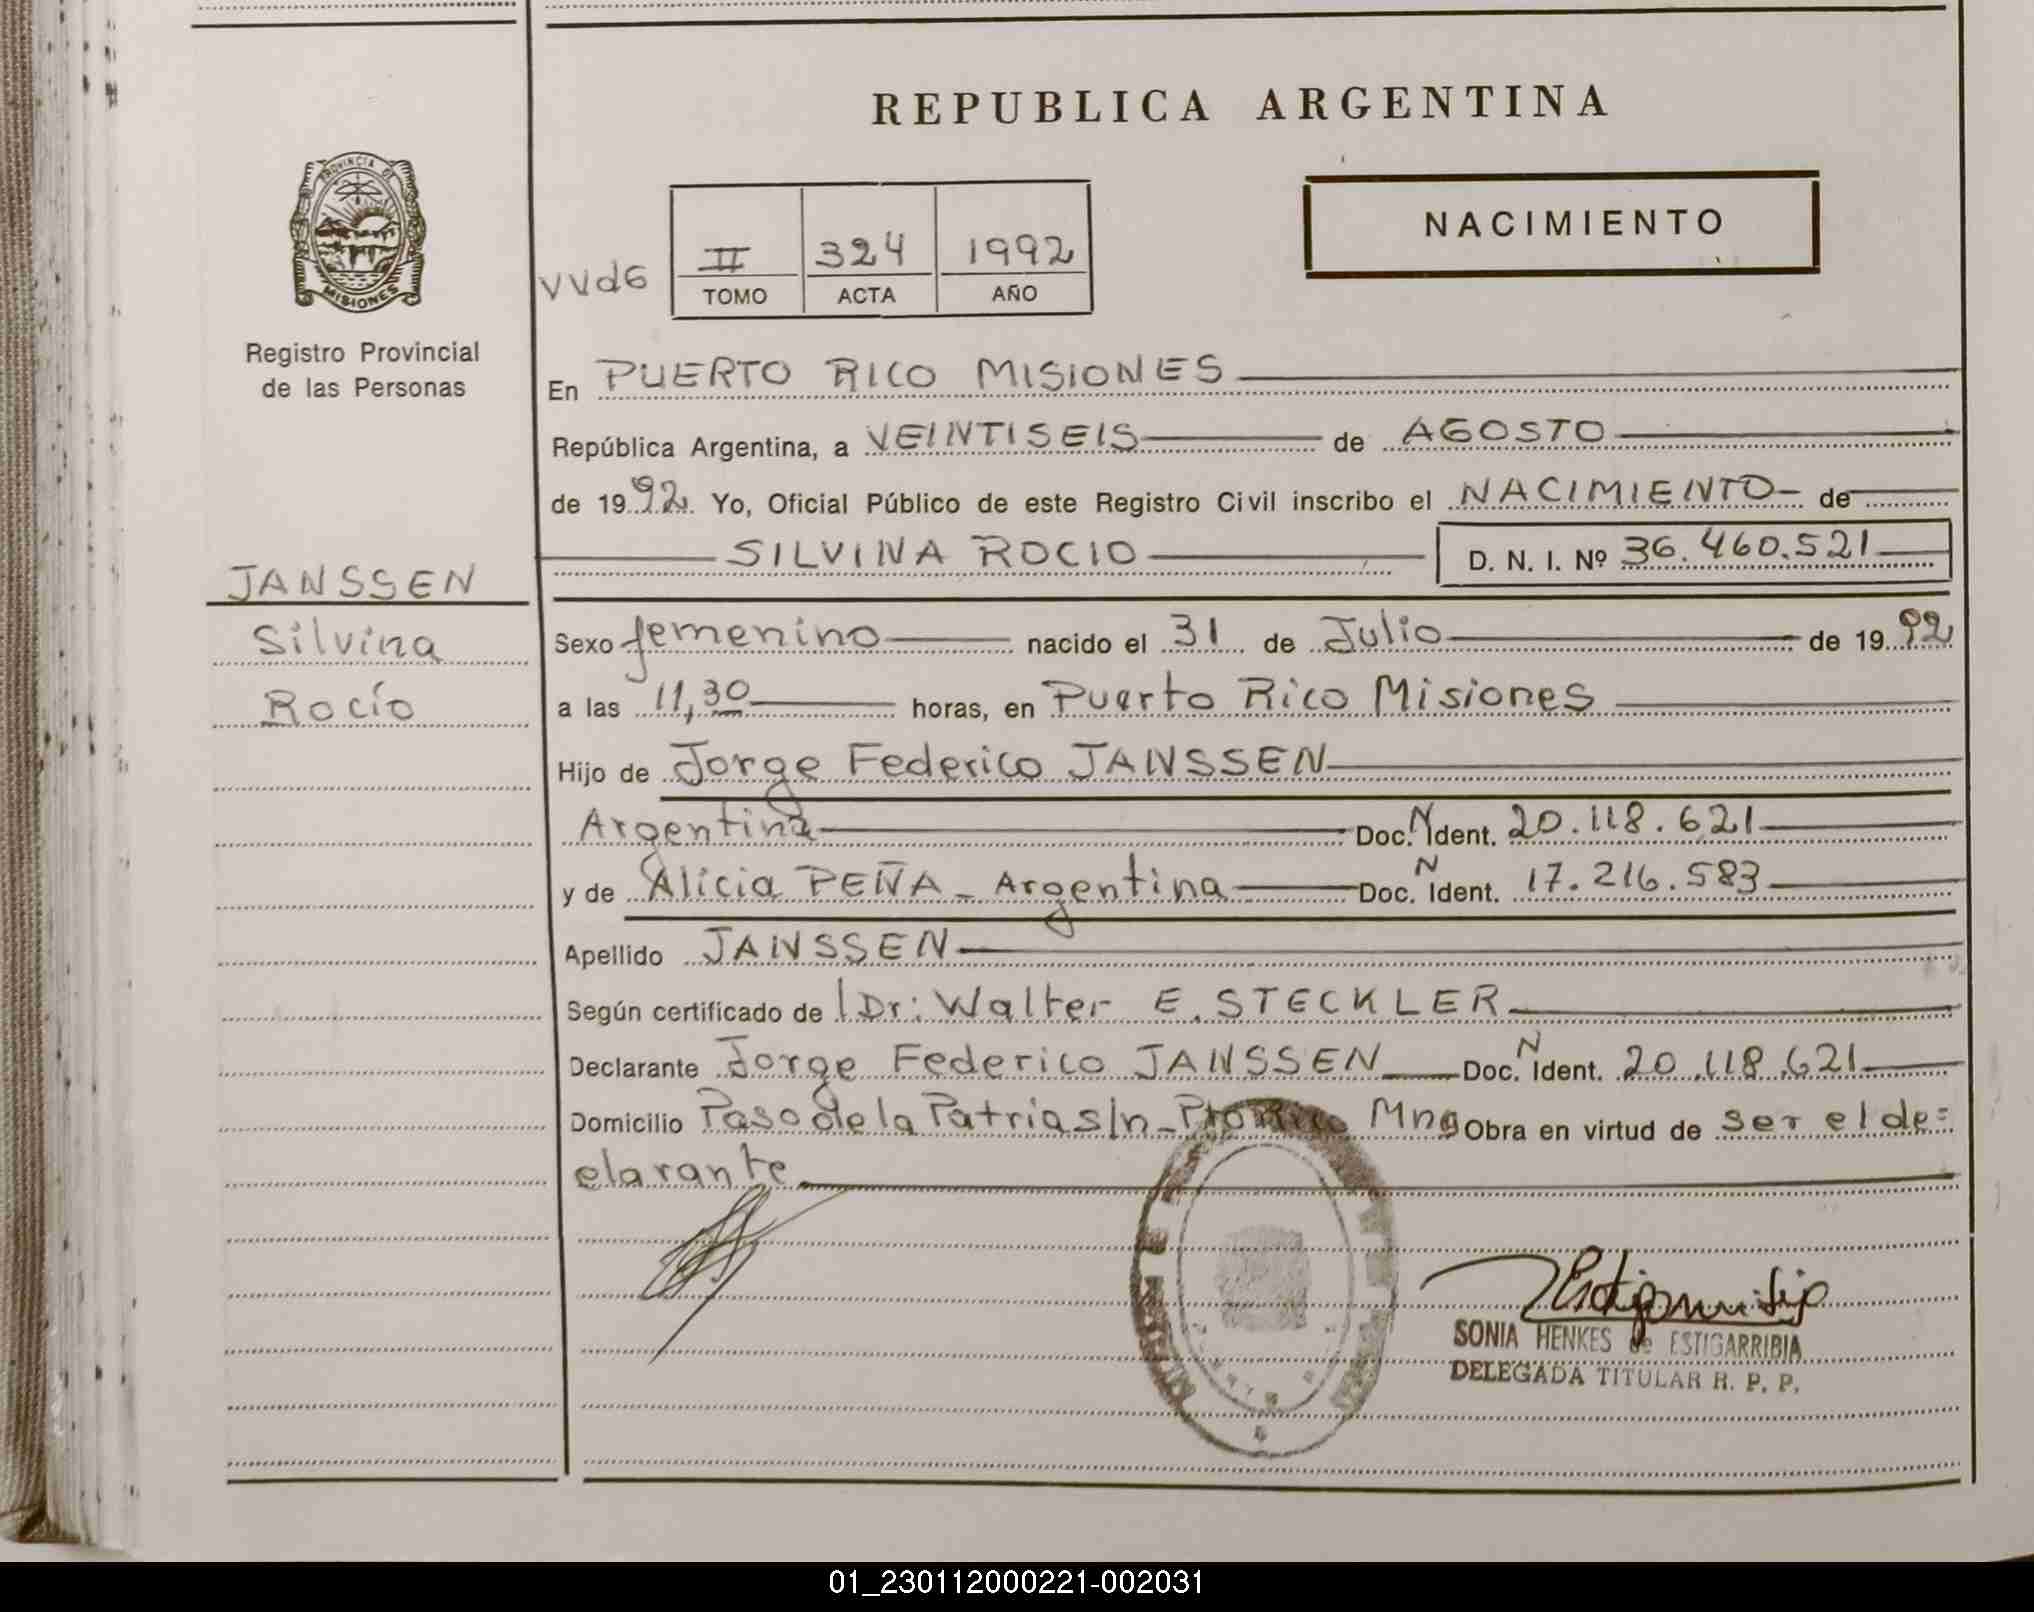 REPUBLICA ARGENTINA
NACIMIENTO
PROVINCIA DE
MISIONES
Registro Provincial
de las Personas
VVdG
II 324 1992
TOMO ACTA AÑO
En PUERTO RICO MISIONES
República Argentina, a VEINTISEIS de AGOSTO
de 1992. Yo, Oficial Público de este Registro Civil inscribo el NACIMIENTO- de
SILVINA ROCIO D. N. I. Nº 36.460.521
JANSSEN
Silvina
Rocío
Sexo femenino nacido el 31 de Julio de 1992
a las 11,30 horas, en Puerto Rico Misiones
Hijo de Jorge Federico JANSSEN
Argentina Doc. N Ident. 20.118.621
y de Alicia PEÑA - Argentina Doc. N Ident. 17.216.583
Apellido JANSSEN
Según certificado de Dr: Walter E. STECKLER
Declarante Jorge Federico JANSSEN Doc. N Ident. 20.118.621
Domicilio Paso de la Patria s/n - Pto Rico Mnes Obra en virtud de ser el de=
clarante
SONIA HENKES de ESTIGARRIBIA
DELEGADA TITULAR R. P. P.
01_230112000221-002031